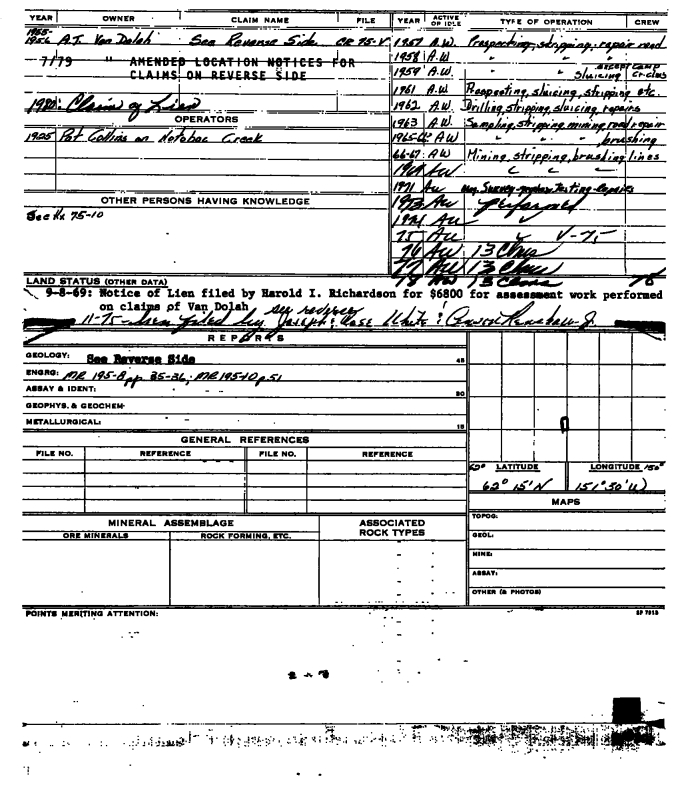 YEAR OWNER CLAIM NAME FILE YEAR ACTIVE OR IDLE TYPE OF OPERATION CREW
1955-
1956 A.J. Van Dolah See Reverse Side CR 75-V 1957 A.W. Prospecting, stripping, repair road
1958 A.W. " " "
7/79 " AMENDED LOCATION NOTICES FOR
CLAIMS ON REVERSE SIDE
1959 A.W. " " sluicing
1961 A.W. Prospecting, sluicing, stripping etc.
1980: Claim of Lien 1962 A.W. Drilling, stripping, sluicing, repairs
OPERATORS 1963 A.W. Sampling, stripping, mining, road repair
1925 Pat Collins on Notobac Creek A.W. " " " , brushing
66-67 A.W. Mining, stripping, brushing lines
AW
1971 AW Testing-Repairs
OTHER PERSONS HAVING KNOWLEDGE AW Performed
See Kx 75-10 AW
75 AW V-75
76 AW 13 Clms
77 AW 13 Clms
78 AW 13 Clms 78
LAND STATUS (OTHER DATA)
9-8-69: Notice of Lien filed by Harold I. Richardson for $6800 for assessment work performed
on claims of Van Dolah see reverse
11-75 - Lien filed by Joseph White
REPORTS
GEOLOGY: See Reverse Side 45
ENGRG: MR 195-8 pp 35-36; MR 195-10 p.51
ASSAY & IDENT: 30
GEOPHYS. & GEOCHEM-
METALLURGICAL: 15
GENERAL REFERENCES
FILE NO. REFERENCE FILE NO. REFERENCE
LATITUDE LONGITUDE 150°
62° 15' N 151° 30' W)
MAPS
MINERAL ASSEMBLAGE ASSOCIATED ROCK TYPES
ORE MINERALS ROCK FORMING, ETC.
TOPOG:
GEOL:
MINE:
ASSAY:
OTHER (& PHOTOS)
POINTS MERITING ATTENTION: